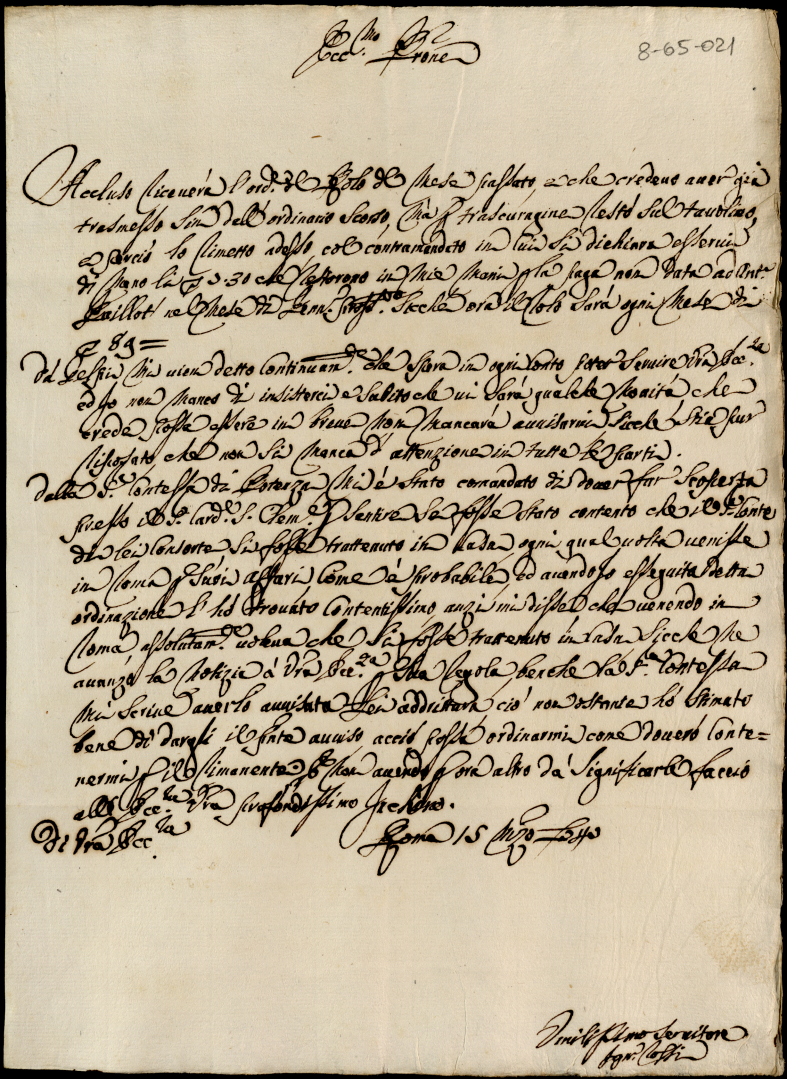 Ecc.mo Prone
8-65-021
Accluso riceverà l'ord.e del Rolo del Mese passato, e che credevo aver già
trasmesso sin dall'ordinario scorso, Mà p trascuragine restò sul tavolino,
e perciò lo rimetto adesso col contramandato in cui si dichiara esservi
di meno li 5-30 che restorono in mie Mani p la paga non data ad Ant.o
nel Mese di Genn.o Sicche ora il Rolo sarà ogni Mese di
89=
Da Gessi Mi vien detto Continuam.e che spera in ogni conto poter servire Vra Ecc.za
ed io non manco di insisterci e subito che vi sarà qualche Novità che
crede possa essere in breve Non Mancarà avvisarvi sicche stia pur
riposato, che non si manca d'attenzione in tutte le parti.
Dalla S.ra Contessa di Potenza Mi è stato comandato di dover far scoperta
presso il S.r Card.e S. Clem.e p sentire se fosse stato contento che il S.r Conte
di lei Consorte si fosse trattenuto in Casa ogni qual volta venisse
in Roma p suoi affari come è probabile, ed avendo io esseguita detta
ordinazione l'hò trovato contentissimo anzi mi disse che venendo in
Roma assolutam.e voleva che si fosse trattenuto in Casa Sicche Ne
avanzo la Notizia à Vra Ecc.za p sua regola, benche la S.ra Contessa
Mi scrive averlo avvisato Lei addrittura ciò non ostante hò stimato
bene di dargli il pnte avviso acciò possa ordinarmi come doverò conte=
nermi p il rimanente, e Non avendo p ora altro da significarle faccio
all' Ecc.za Vra profondissimo Inchino.
Di Vra Ecc.za
Roma 15 Mzo 1740
Umilissimo Servitore
Rossi